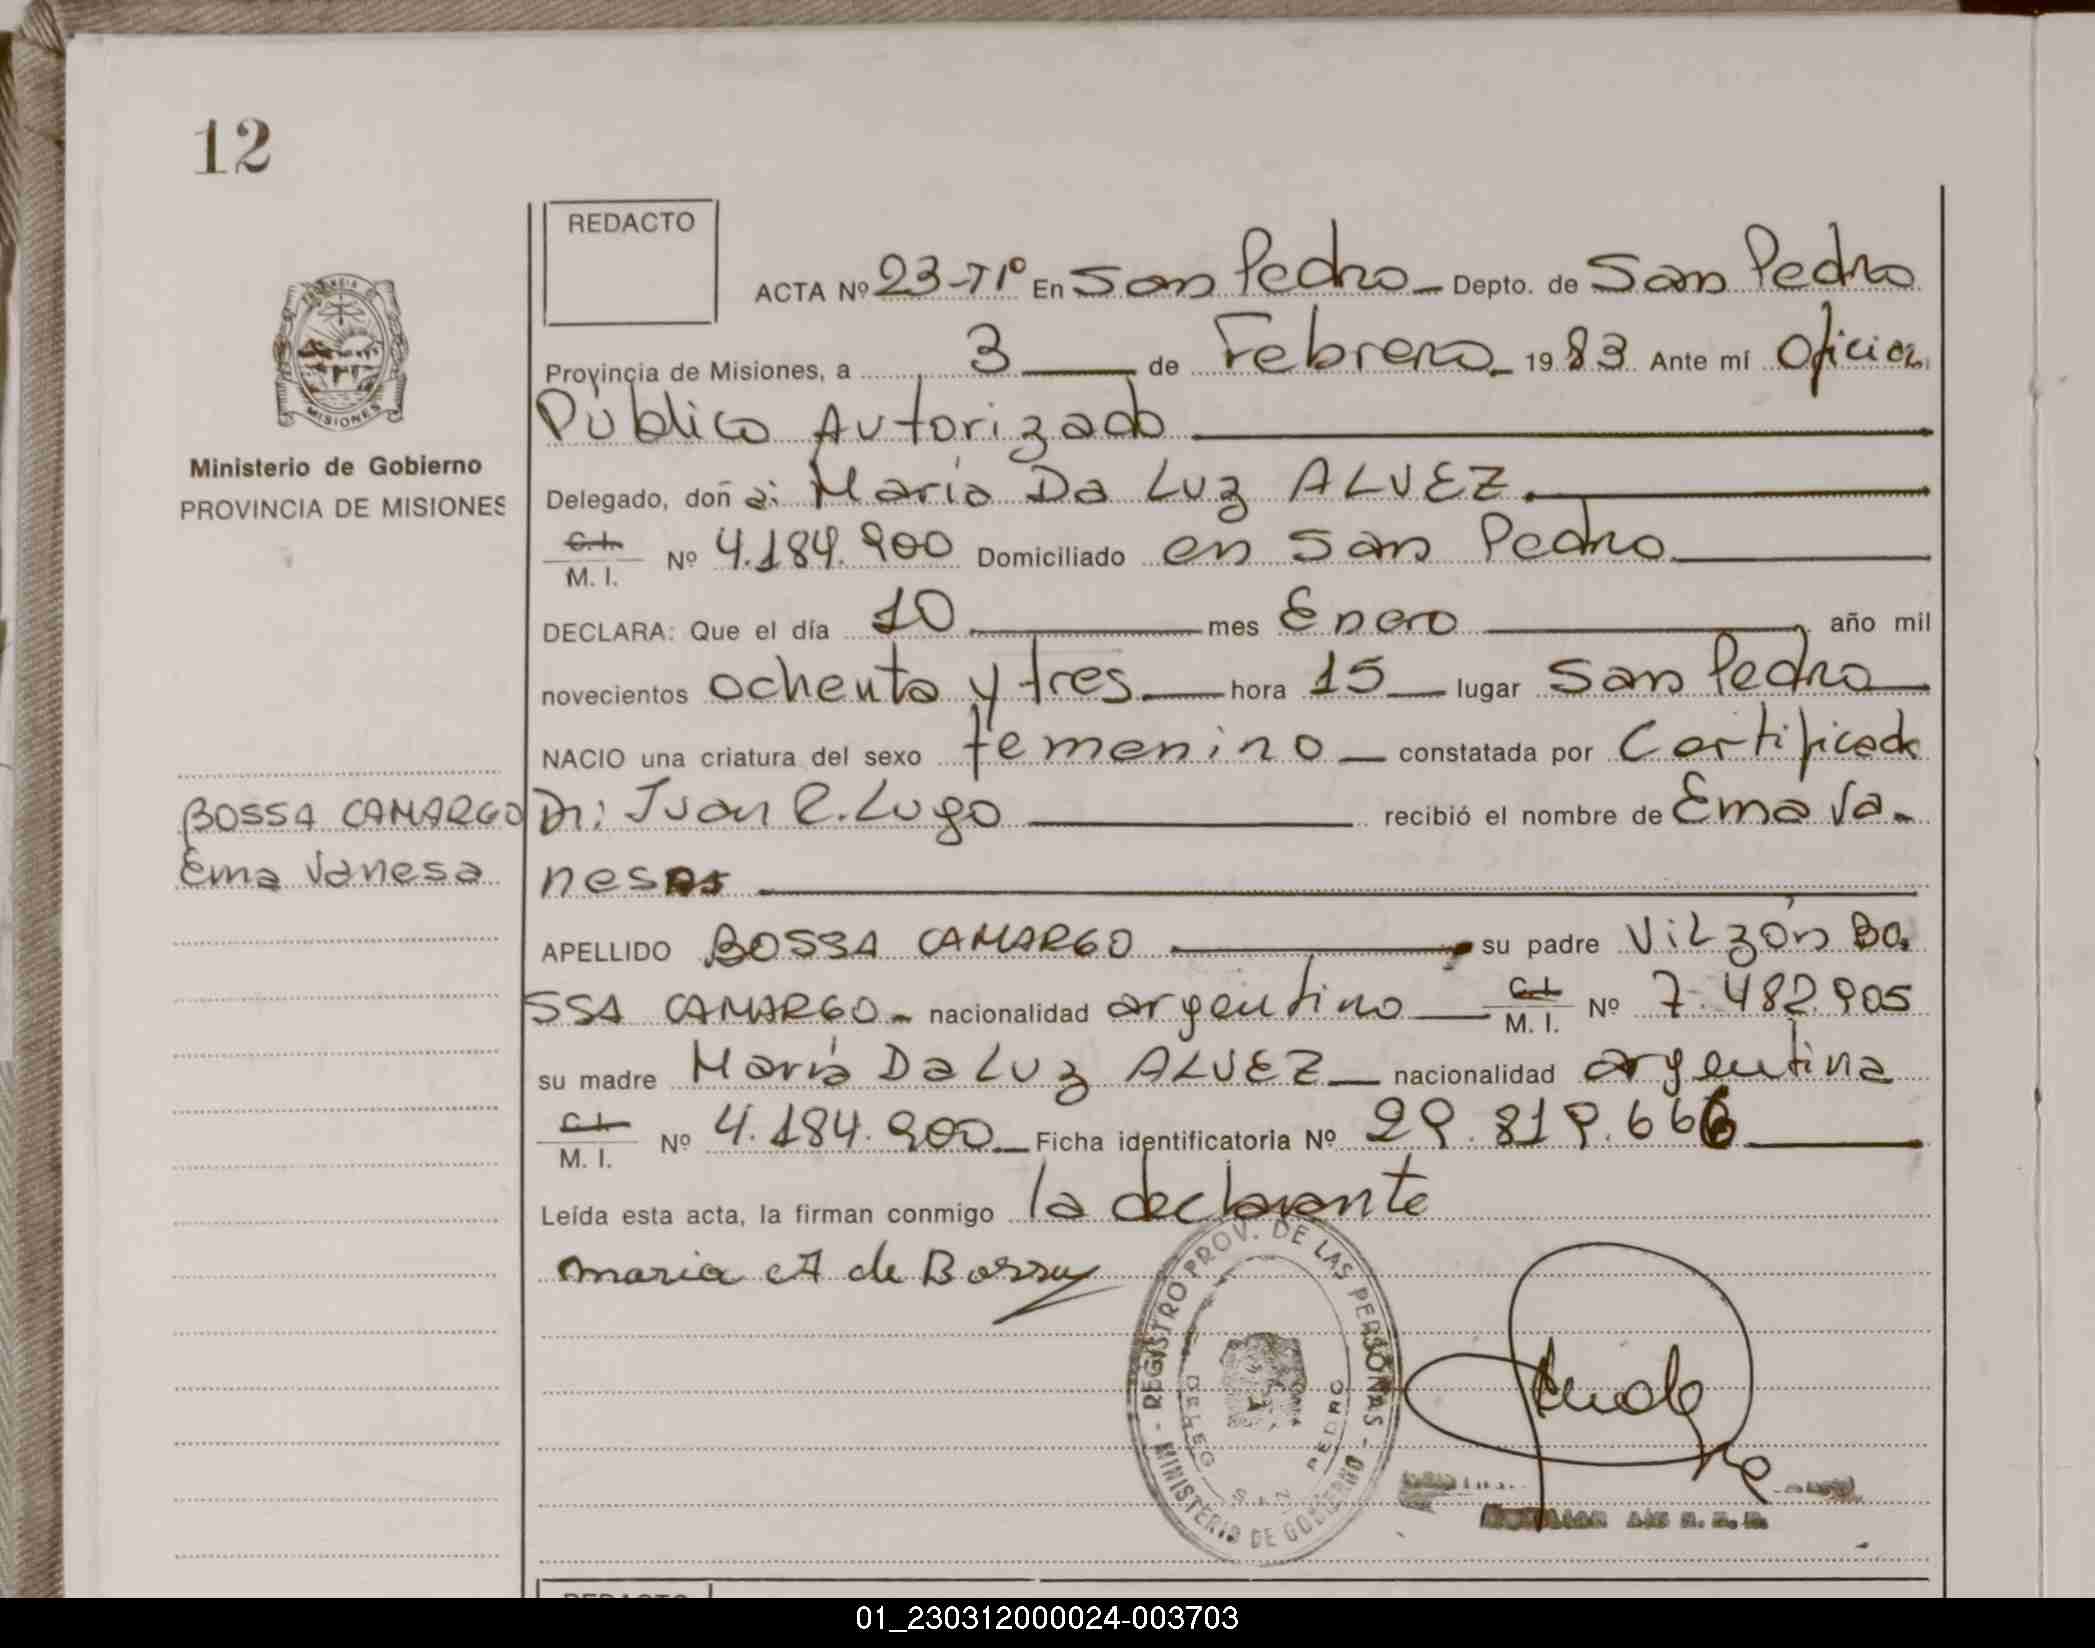 12
REDACTO
ACTA Nº 23-Tº En San Pedro Depto. de San Pedro
Provincia de Misiones, a 3 de Febrero 1983 Ante mí Oficial
Público Autorizado
Delegado, doñ a: María Da Luz ALVEZ
C.I. M. I. Nº 4.184.900 Domiciliado en San Pedro
DECLARA: Que el día 10 mes Enero año mil
novecientos ochenta y tres hora 15 lugar San Pedro
NACIO una criatura del sexo femenino constatada por Certificado
Dr: Juan R. Lugo recibió el nombre de Ema Va-
nesa
APELLIDO BOSSA CAMARGO su padre VilzóN BO
SSA CAMARGO nacionalidad argentino C.I. M. I. Nº 7.482.905
su madre María Da Luz ALVEZ nacionalidad argentina
C.I. M. I. Nº 4.184.900 Ficha identificatoria Nº 29.819.666
Leída esta acta, la firman conmigo la declarante
maria A de Bossa
PROVINCIA DE MISIONES
Ministerio de Gobierno
PROVINCIA DE MISIONES
BOSSA CAMARGO
Ema Vanesa
REGISTRO PROV. DE LAS PERSONAS - MINISTERIO DE GOBIERNO -
DELEG. SAN PEDRO
REDACTO
01_230312000024-003703